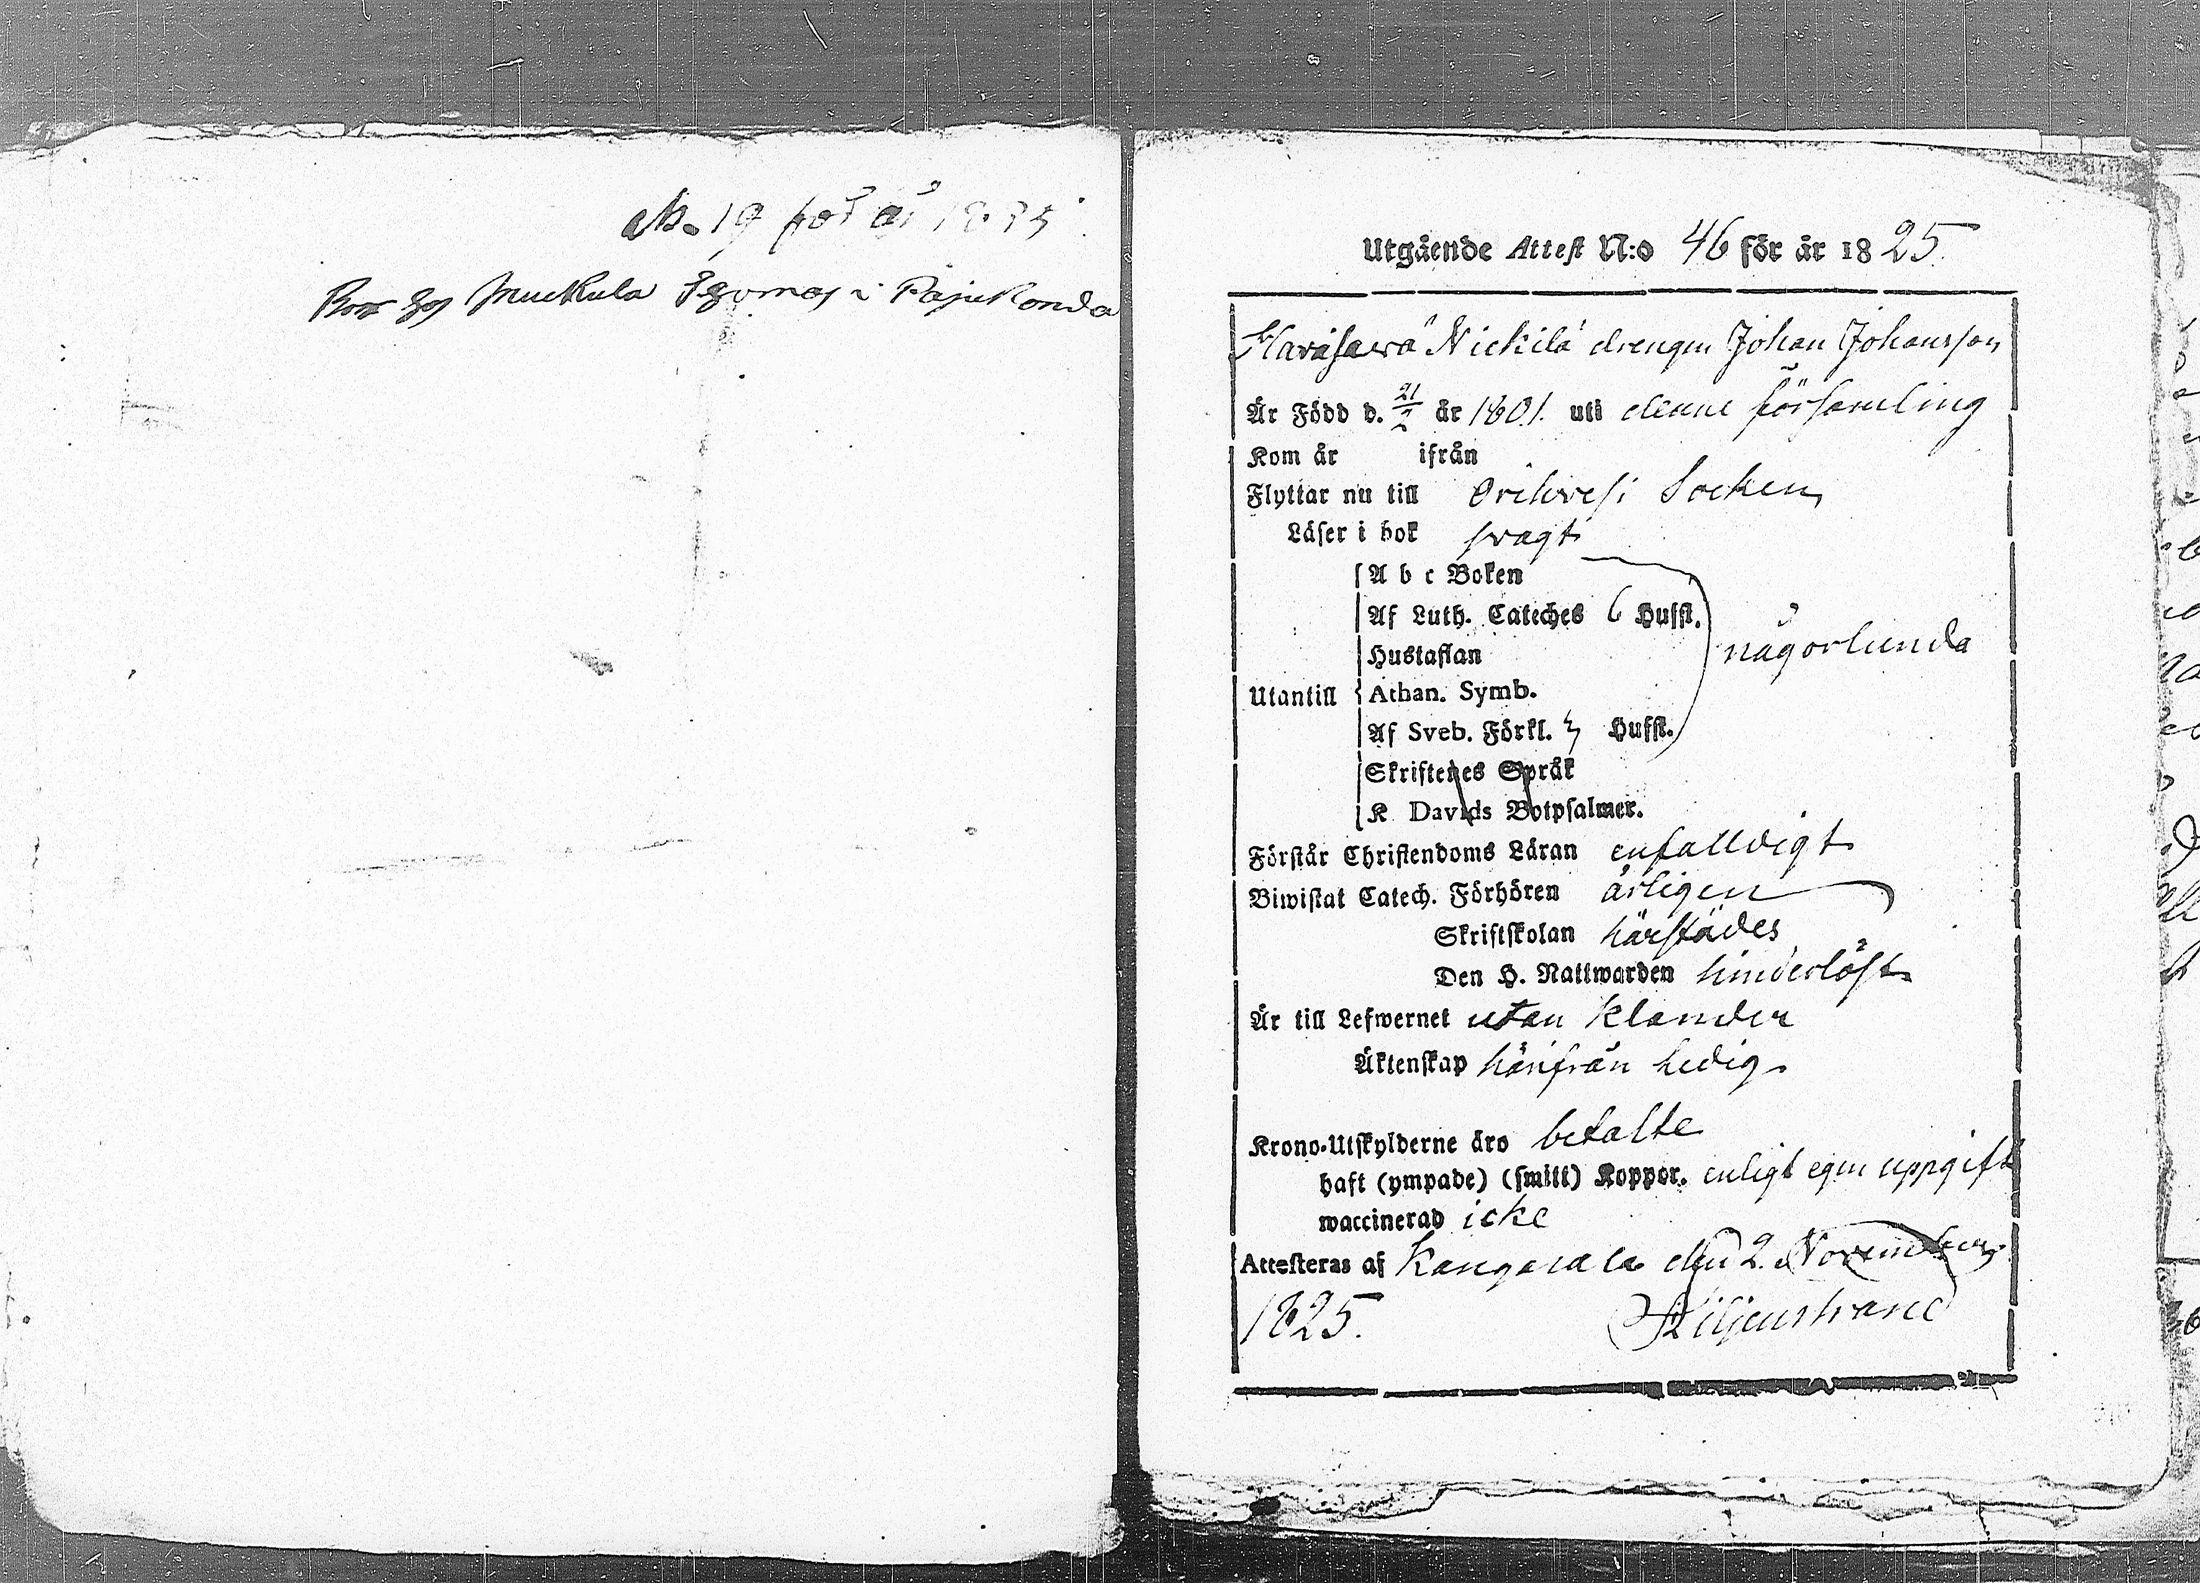 No 19 för år 1825
Muckula i Pajukonda
Utgående Attest N:o 46 för år 1825.
Haraisawa Nickilä drengen Johan Johansson
Är Född d. 21/2 år 1801. uti denne församling
Kom år ifrån
Flyttar nu till Orihvesi Socken
Läser i bok svagt
A b c Boken
Af Luth. Cateches 6 Hufst.
Hustaflan
någorlunda
Utantill
Athan. Symb.
Af Sveb. Förkl. 3 Hufst.
Skriftenes Språk
K Davids Botpsalmer.
Förstår Christendoms Läran enfalldigt
Biwistat Catech. Förhören årligen
Skriftskolan härstädes
Den H. Nattwarden hinderlöst
Är till Lefwernet utan klander
Äktenskap härifrån ledig.
Krono-Utskylderne äro betalte
haft (ympade) (smitt) Koppor. enligt egen uppgift
waccinerad icke
Attesteras af Kangasala den 2. November
1825. Liljenstrand